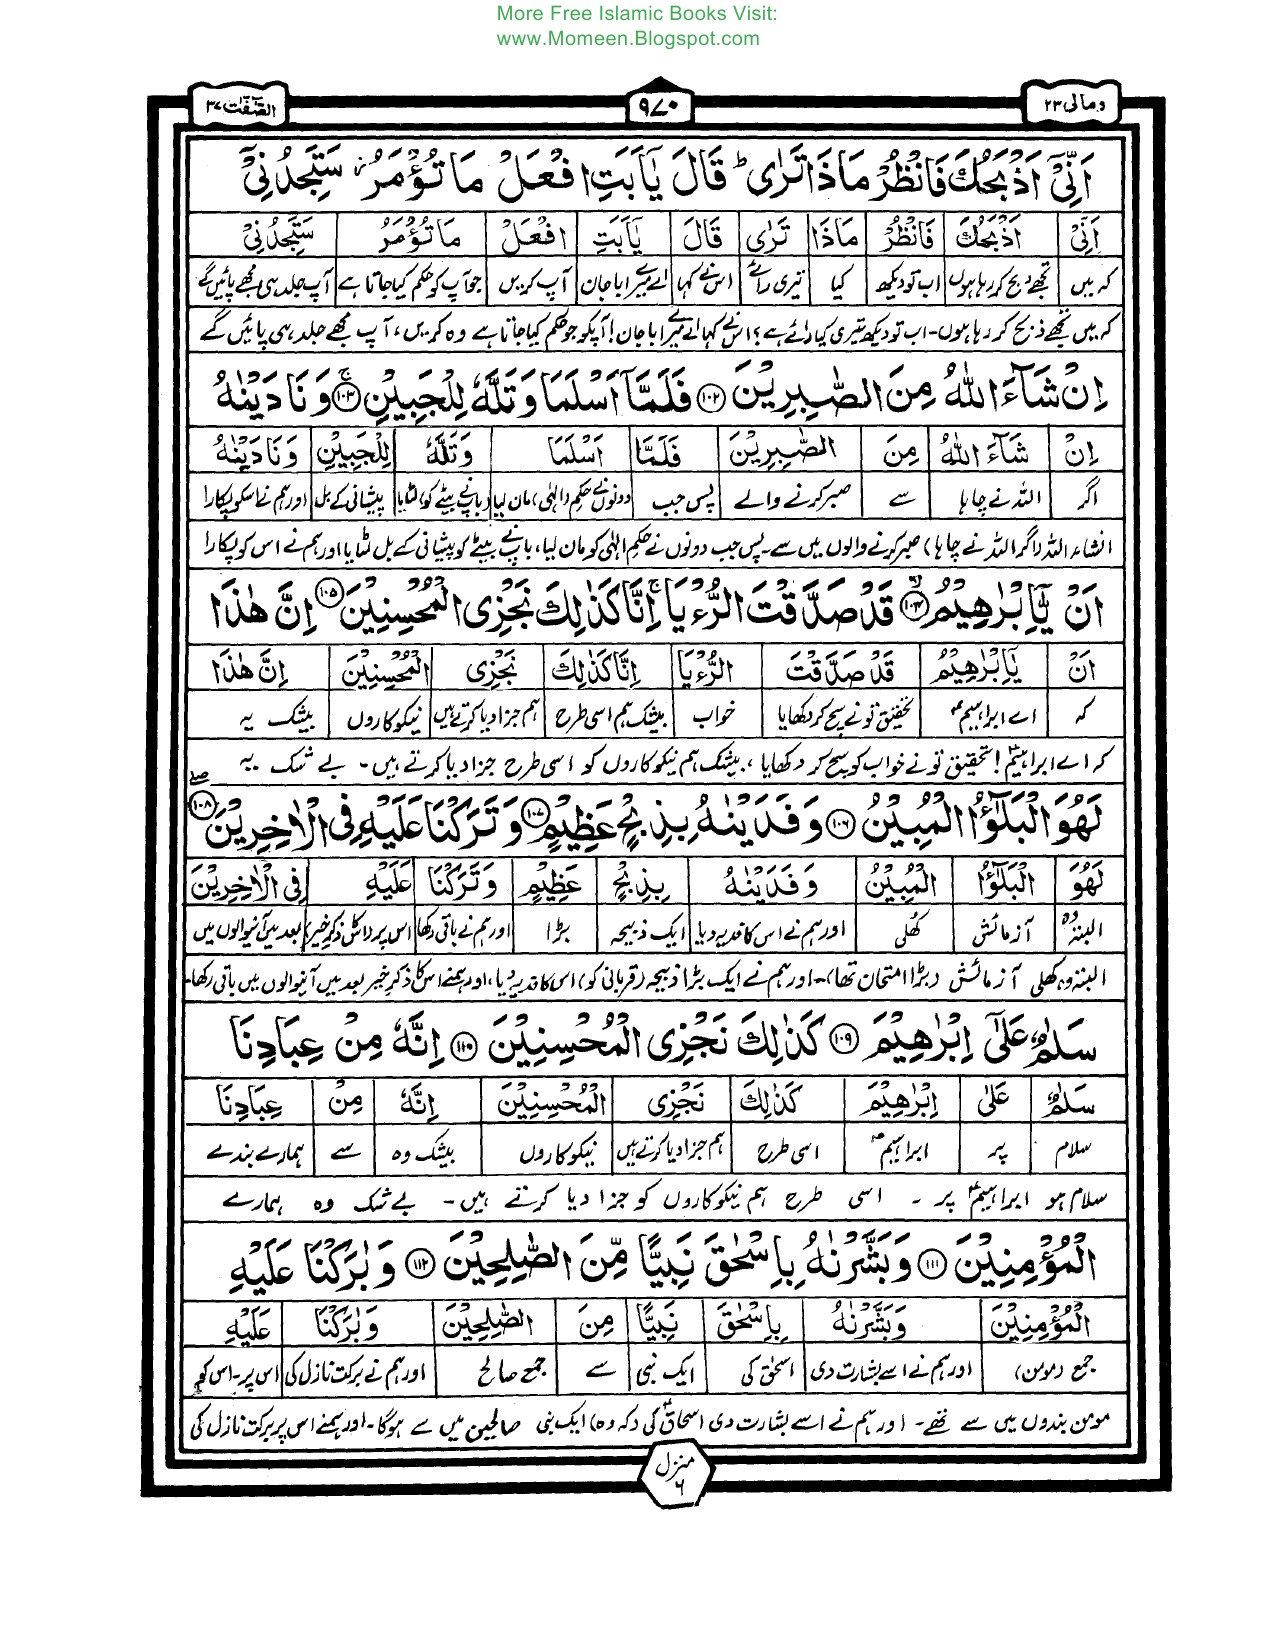 More Free Islamic Books Visit:
www.Momeen.Blogspot.com
ومالی ۲۳
۹۷۰
الصّٰٓفّٰت ۳۷
اَنِّیْۤ اَذْبَحُكَ فَانْظُرْ مَاذَا تَرٰی ؕ قَالَ یٰۤاَبَتِ افْعَلْ مَا تُؤْمَرُ ؗ سَتَجِدُنِیْۤ
اَنِّیْ اَذْبَحُكَ فَانْظُرْ مَاذَا تَرٰی قَالَ یٰۤاَبَتِ افْعَلْ مَا تُؤْمَرُ سَتَجِدُنِیْ
کہ میں تجھے ذبح کر رہا ہوں اب تو دیکھ کیا تیری رائے اس نے کہا اے میرے ابا جان آپ کریں جو آپ کو حکم کیا جاتا ہے آپ جلد ہی مجھے پائیں گے
کہ میں تجھے ذبح کر رہا ہوں۔ اب تو دیکھ تیری کیا رائے ہے؟ اس نے کہا اے میرے ابا جان! آپکو جو حکم کیا جاتا ہے وہ کریں، آپ مجھے جلد ہی پائیں گے
اِنْ شَآءَ اللّٰهُ مِنَ الصّٰبِرِیْنَ ۝۱۰۲ فَلَمَّاۤ اَسْلَمَا وَتَلَّهٗ لِلْجَبِیْنِ ۝۱۰۳ۚ وَنَادَیْنٰهُ
اِنْ شَآءَ اللّٰهُ مِنَ الصّٰبِرِیْنَ فَلَمَّا اَسْلَمَا وَتَلَّهٗ لِلْجَبِیْنِ وَنَادَیْنٰهُ
اگر اللہ نے چاہا سے صبر کرنے والے پس جب دونوں نے حکم (الٰہی) مان لیا (باپ نے بیٹے کو) لٹایا پیشانی کے بل اور ہم نے اسکو پکارا
انشاء اللہ (اگر اللہ نے چاہا) صبر کرنے والوں میں سے۔ پس جب دونوں نے حکم الٰہی کو مان لیا، باپ نے بیٹے کو پیشانی کے بل لٹایا اور ہم نے اس کو پکارا
اَنْ یّٰۤاِبْرٰهِیْمُ ۝۱۰۴ۙ قَدْ صَدَّقْتَ الرُّءْیَا ۚ اِنَّا كَذٰلِكَ نَجْزِی الْمُحْسِنِیْنَ ۝۱۰۵ اِنَّ هٰذَا
اَنْ یٰۤاِبْرٰهِیْمُ قَدْ صَدَّقْتَ الرُّءْیَا اِنَّا كَذٰلِكَ نَجْزِی الْمُحْسِنِیْنَ اِنَّ هٰذَا
کہ اے ابراہیمؑ تحقیق تو نے سچ کر دکھایا خواب بیشک ہم اسی طرح ہم جزا دیا کرتے ہیں نیکوکاروں بیشک یہ
کہ اے ابراہیمؑ! تحقیق تو نے خواب کو سچ کر دکھایا، بیشک ہم نیکوکاروں کو اسی طرح جزا دیا کرتے ہیں۔ بے شک یہ
لَهُوَ الْبَلٰٓؤُا الْمُبِیْنُ ۝۱۰۶ وَفَدَیْنٰهُ بِذِبْحٍ عَظِیْمٍ ۝۱۰۷ وَتَرَكْنَا عَلَیْهِ فِی الْاٰخِرِیْنَ ۝۱۰۸ۖ
لَهُوَ الْبَلٰٓؤُا الْمُبِیْنُ وَفَدَیْنٰهُ بِذِبْحٍ عَظِیْمٍ وَتَرَكْنَا عَلَیْهِ فِی الْاٰخِرِیْنَ
البتہ وہ آزمائش کھلی اور ہم نے اس کا فدیہ دیا ایک ذبیحہ بڑا اور ہم نے باقی رکھا اس پر (اسکا ذکر خیر) بعد میں آنیوالوں میں
البتہ وہ کھلی آزمائش (بڑا امتحان تھا)۔ اور ہم نے ایک بڑا ذبیحہ (قربانی کو) اس کا فدیہ دیا، اور ہمنے اسکا ذکرِ خیر بعد میں آنیوالوں میں باقی رکھا۔
سَلٰمٌ عَلٰۤی اِبْرٰهِیْمَ ۝۱۰۹ كَذٰلِكَ نَجْزِی الْمُحْسِنِیْنَ ۝۱۱۰ اِنَّهٗ مِنْ عِبَادِنَا
سَلٰمٌ عَلٰی اِبْرٰهِیْمَ كَذٰلِكَ نَجْزِی الْمُحْسِنِیْنَ اِنَّهٗ مِنْ عِبَادِنَا
سلام پر ابراہیمؑ اسی طرح ہم جزا دیا کرتے ہیں نیکوکاروں بیشک وہ سے ہمارے بندے
سلام ہو ابراہیمؑ پر۔ اسی طرح ہم نیکوکاروں کو جزا دیا کرتے ہیں۔ بے شک وہ ہمارے
الْمُؤْمِنِیْنَ ۝۱۱۱ وَبَشَّرْنٰهُ بِاِسْحٰقَ نَبِیًّا مِّنَ الصّٰلِحِیْنَ ۝۱۱۲ وَبٰرَكْنَا عَلَیْهِ
الْمُؤْمِنِیْنَ وَبَشَّرْنٰهُ بِاِسْحٰقَ نَبِیًّا مِنَ الصّٰلِحِیْنَ وَبٰرَكْنَا عَلَیْهِ
جمع (مومن) اور ہم نے اسے بشارت دی اسحٰق کی ایک نبی سے جمع صالح اور ہم نے برکت نازل کی اس پر۔ اس کو
مومن بندوں میں سے تھے۔ اور ہم نے اسے بشارت دی اسحاقؑ کی (کہ وہ) ایک نبی صالحین میں سے ہوگا۔ اور ہمنے اس پر برکت نازل کی
منزل ۶